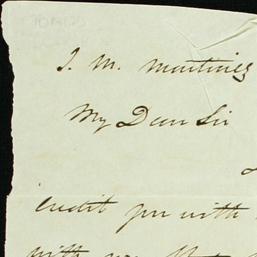 J. M. Martinez
My Dear Sir
credit you with
with you